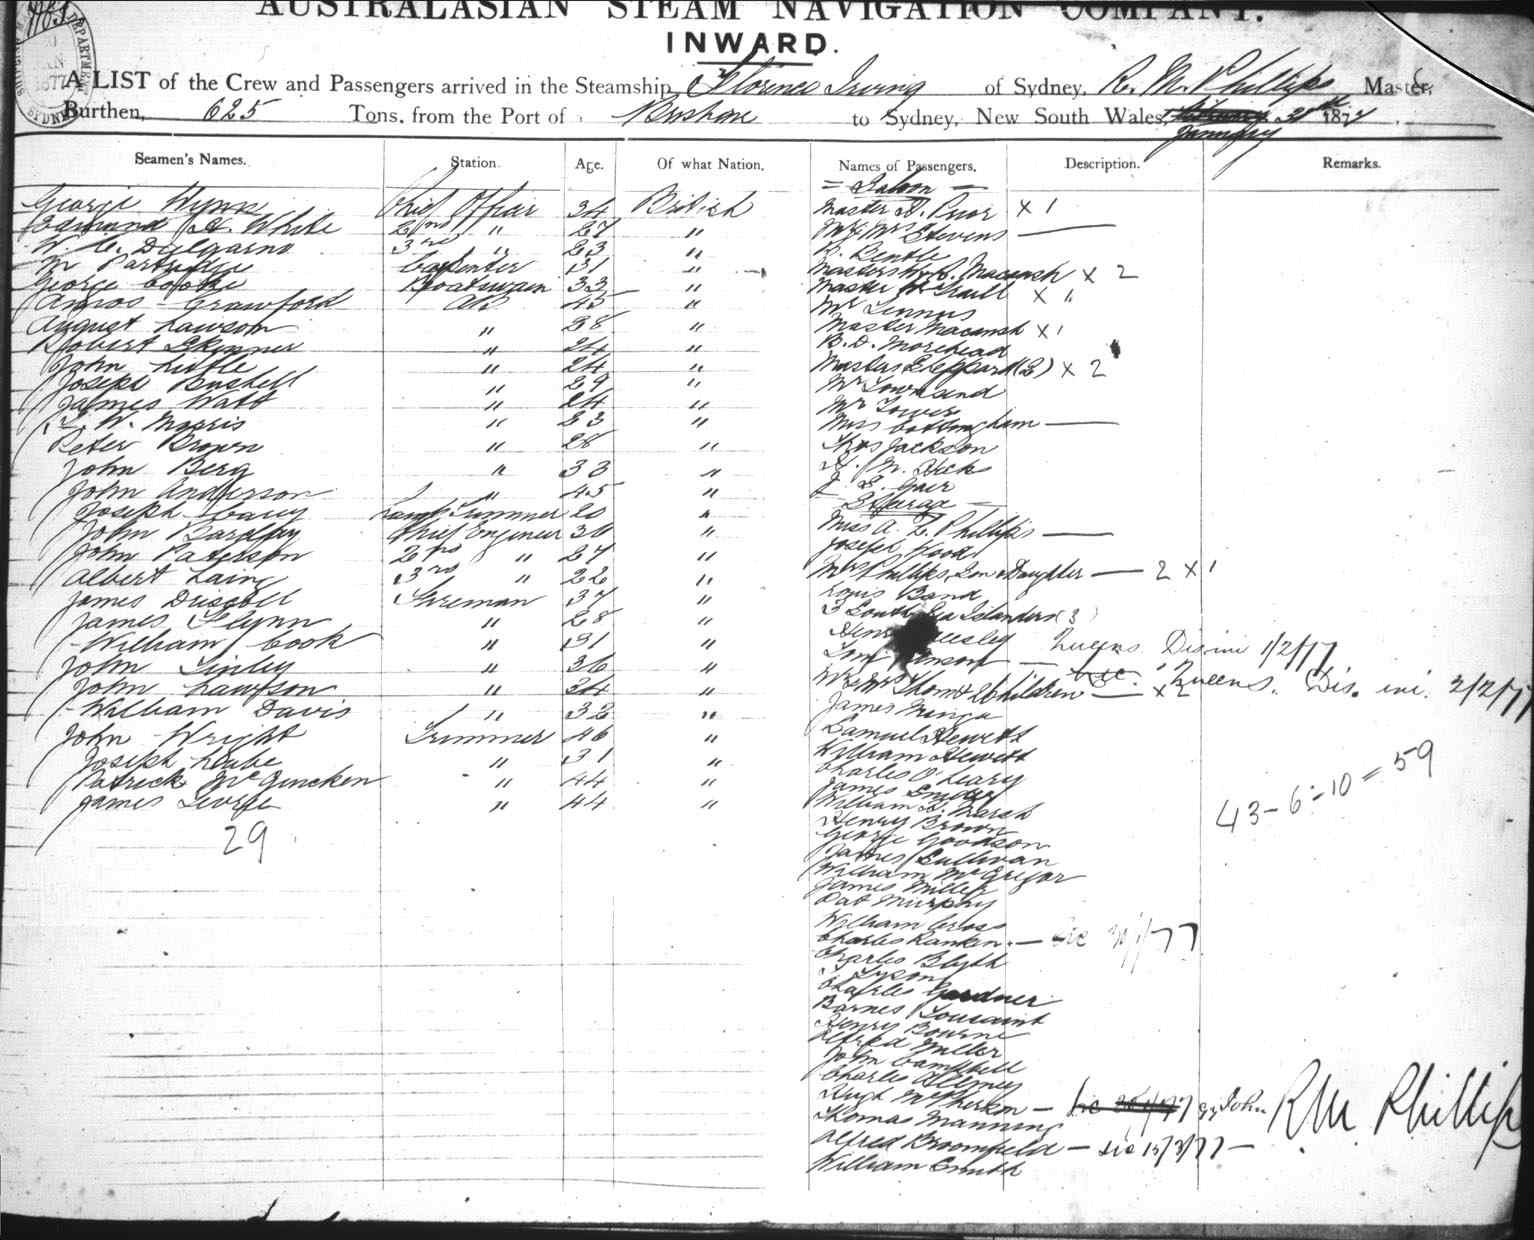 AUSTRALASIAN STEAM NAVIGATION COMPANY.
INWARD.
A LIST of the Crew and Passengers arrived in the Steamship Florence Irving of Sydney, R. M. Phillips Master,
Burthen, 625 Tons, from the Port of Brisbane to Sydney, New South Wales, January 31st 1877
Seamen's Names. Station. Age. Of what Nation.
George Wynn Chief Officer 34 British
Edmund H. White 2nd " 27 "
W. C. Dalgarno 3rd " 23 "
M Partridge Carpenter 31 "
George Cooke Boatswain 33 "
Amos Crawford AB 45 "
August Lawson " 28 "
Robert Skinner " 24 "
John Little " 24 "
Joseph Bushell " 29 "
James Watt " 24 "
W. Morris " 23 "
Peter Brown " 28 "
John Berg " 33 "
John Anderson " 45 "
Joseph Carey Lamp Trimmer 20 "
John Barclay Chief Engineer 30 "
John Paterson 2nd " 27 "
Albert Laing 3rd " 22 "
James Driscoll Fireman 37 "
James Flynn " 28 "
William Cook " 31 "
John Finley " 36 "
John Lawson " 34 "
William Davis " 32 "
John Wright Trimmer 46 "
Joseph " 31 "
Patrick " 44 "
James " 44 "
29
Names of Passengers. Description. Remarks.
= Saloon =
Master Prior x 1
Mr & Mrs Stevens —
Macansh x 2
Master Traill x "
Mr Lennos
Master Macansh x 1
B. D. Morehead
Masters Sheppard (2) x 2
Mr Townsend
Mr Tower
Miss Cottingham —
Thos Jackson
M. Hick
= Steerage =
Miss A. E. Phillips —
Joseph Wood
Mrs Phillips, Son & Daughter — 2 x 1
Louis Band
3 South Sea Islanders (3)
Henry — Queens Dis ini 1/2/77
— Queens. Dis. ini. 2/2/77
Mr & Mrs Thom & 2 Children — x 2
James
Samuel Hewett
William Hewett
Charles O'Leary
James
William H. Marsh
Henry Brown
George Goodson
James Sullivan
William McGrigor
James Miller
Pat Murphy
William Cross
Charles Rankin. —
Charles Blyth
Tyson
Charles Gardner
Barnes Tousaint
Henry Bourne
Alfred Miller
John Campbell
Charles
Hugh McPherson —
Thomas Manning
Alfred Broomfield — 15/3/77 —
William Smith
43 - 6 - 10 = 59
R M Phillips